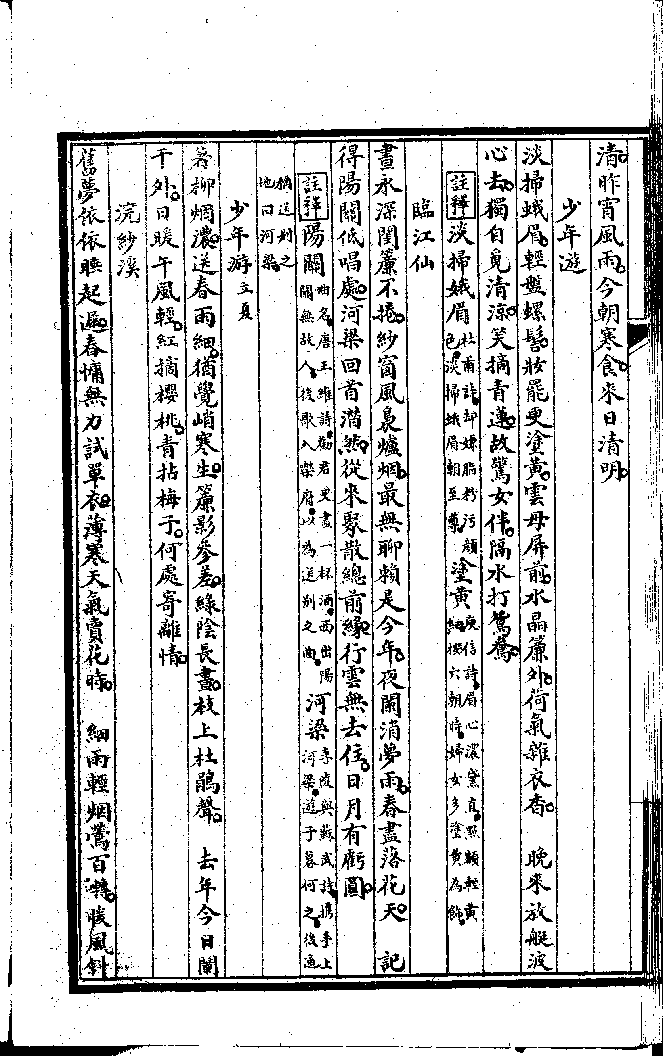 清。昨宵風雨。今朝寒食。來日清明。
少年遊
淡掃蛾眉。輕盤螺髻。妝罷更塗黃。雲母屏前。水晶簾外。荷氣雜衣香。　晚來放艇波
心去。獨自覓清涼。笑摘青蓮。故驚女伴。隔水打鴛鴦。
註釋　淡掃娥眉　杜甫詩。却嫌脂粉污顏色。淡掃蛾眉朝至尊。　塗黃　庾信詩。眉心濃黛直點。額輕黃細按。六朝時。婦女多塗黃為飾。
臨江仙
晝永深閨簾不捲。紗窗風裊爐烟。最無聊賴是今年。夜闌消夢雨。春盡落花天。　記
得陽關低唱處。河梁回首潸然。從來聚散總前緣。行雲無去住。日月有虧圓。
註釋　陽關　曲名。唐王維詩。勸君更盡一杯酒。西出陽關無故人。後歌入樂府。以為送别之曲。　河梁　李陵與蘇武詩。携手上河梁。遊子暮何之。後通
稱送别之地曰河梁。
少年游　立夏
着柳烟濃。送春雨細。猶覺峭寒生。簾影參差。綠陰長晝。枝上杜鵑聲。　去年今日闌
干外。日暖午風輕。紅摘櫻桃。青拈梅子。何處寄離情。
浣紗溪
舊夢依依睡起遲。春慵無力試單衣。薄寒天氣賣花時。　細雨輕烟鶯百囀。暖風斜